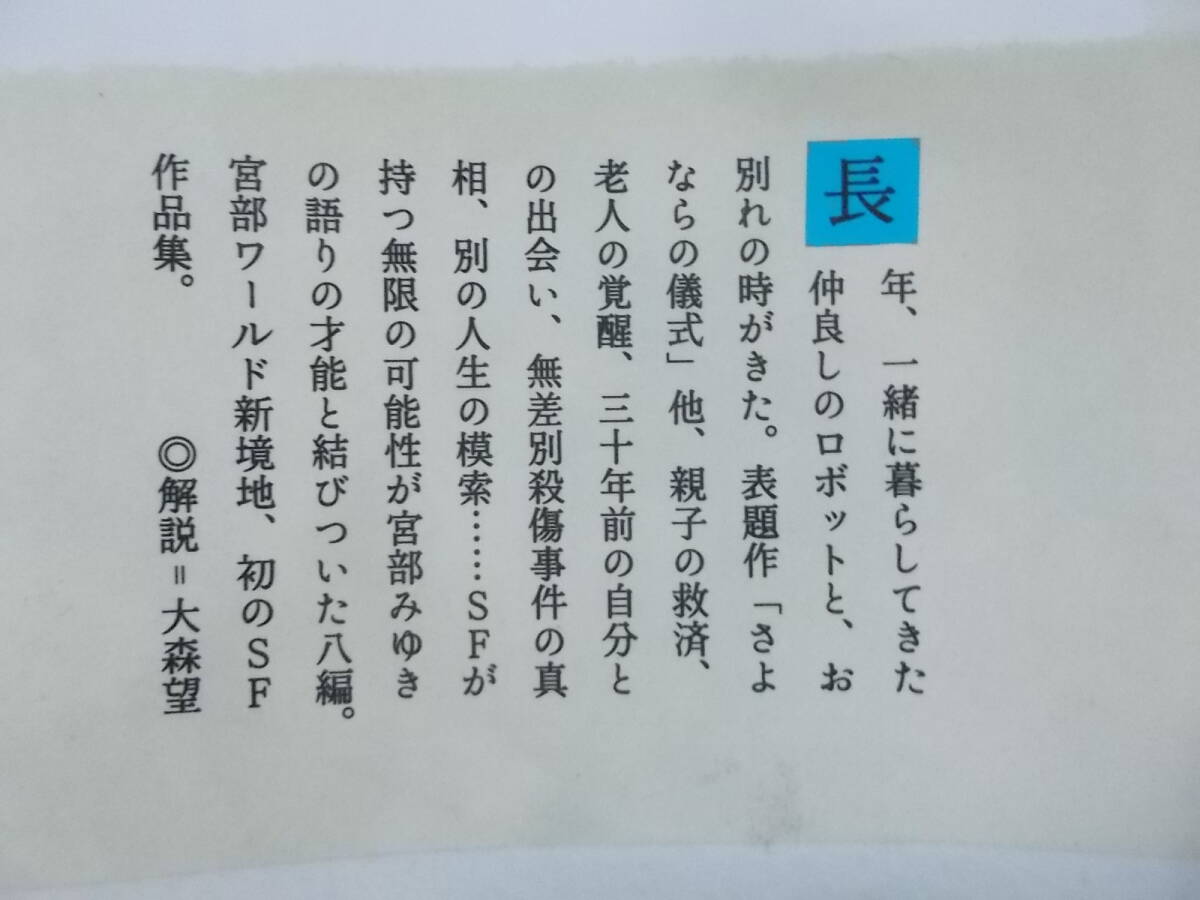 長年、一緒に暮らしてきた
仲良しのロボットと、お
別れの時がきた。表題作「さよ
ならの儀式」他、親子の救済、
老人の覚醒、三十年前の自分と
の出会い、無差別殺傷事件の真
相、別の人生の模索……ＳＦが
持つ無限の可能性が宮部みゆき
の語りの才能と結びついた八編。
宮部ワールド新境地、初のＳＦ
作品集。　◎解説＝大森望